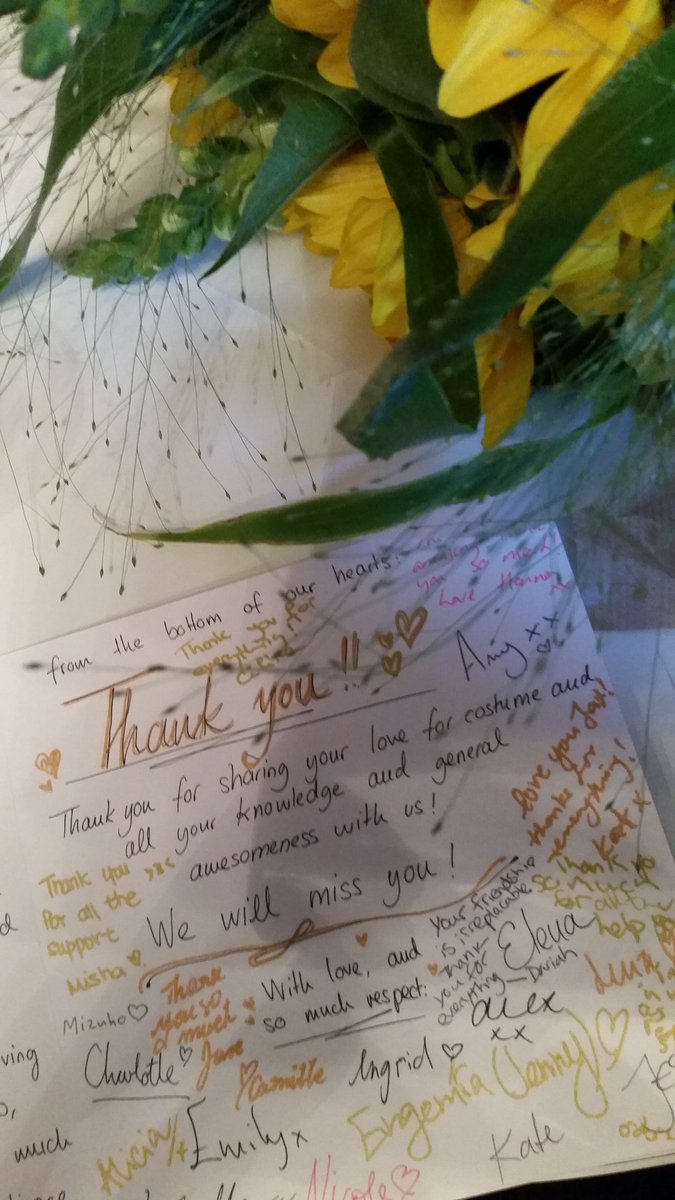 from the bottom of our hearts:
you so much
Love Hannah
xx
Thank you
everything
Thank you!!
Amy xx
Thank you for sharing your love for costume and
all your knowledge and general
awesomeness with us!
We will miss you!
love you Jax!
thanks for
everything!
Kat x
Thank you
for all the
support
Misha
Thank
so much
for all
help
Your friendship
is irreplaceable
Thank
you for
everything
Elena
With love, and
so much respect:
alex
xx
Mizuho
Thank
you so
much
Jane
Charlotte
Camille
Ingrid
Eugenia (Jenny)
Alicia
Emily x
Kate
Nicole
ving
much